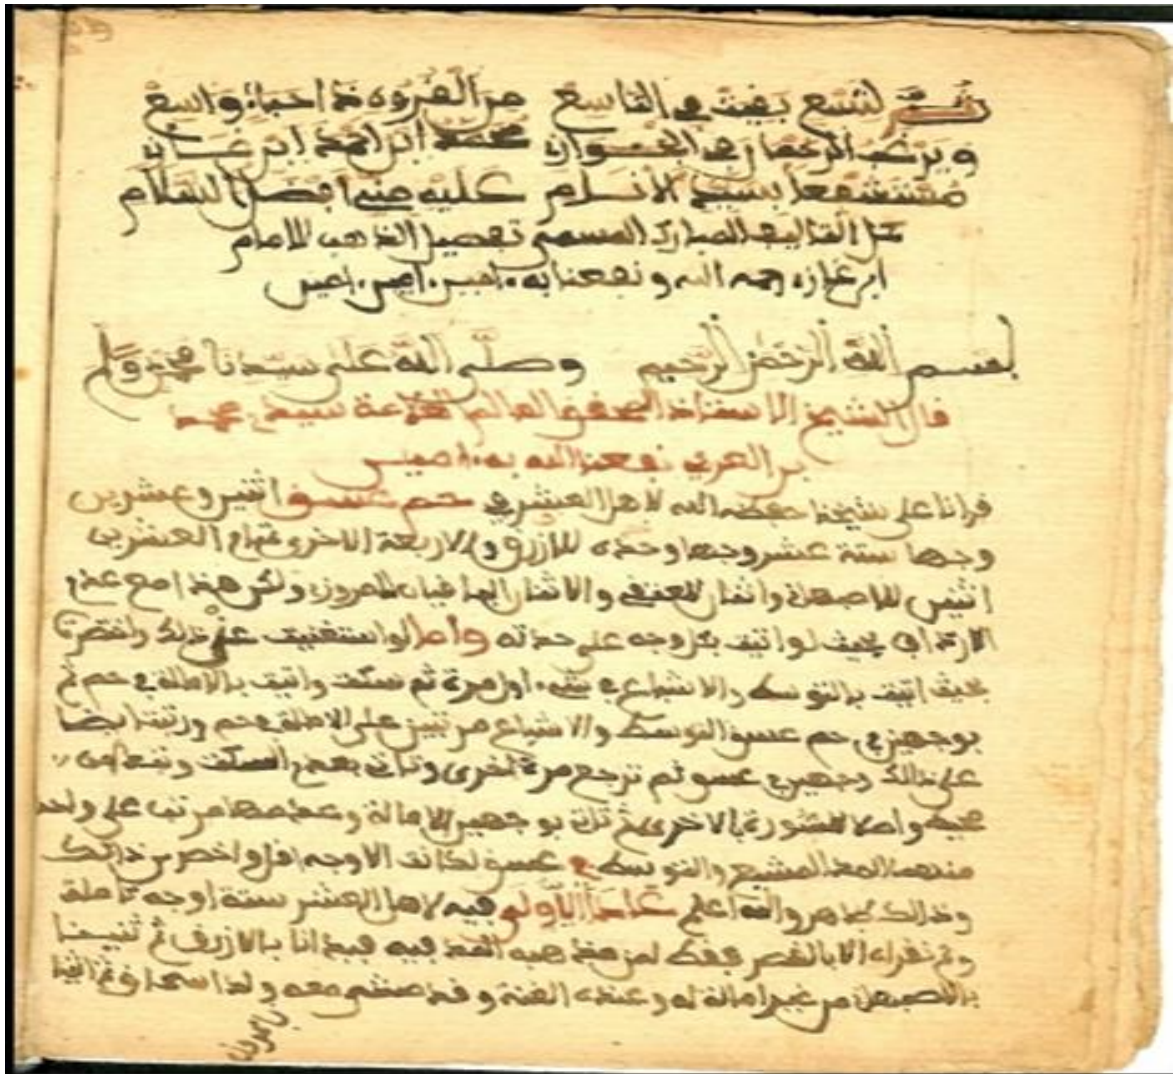 لتسع بقيت في التاسع من القرون قد احياه واسع
ويرغب الرحمان في الجواز محمد ابن احمد ابن غاز
مستشفعا بسيد الانام عليه مني افضل السلام
التاليف المبارك المسمى تفصيل الذهب للامام
ابن غاز رحمه الله ونفعنا به امين امين امين
بسم الله الرحمن الرحيم وصلى الله على سيدنا محمد وءاله
قال الشيخ الاستاذ المحقق العالم العلامة سيدي محمد
بن العربي نفعنا الله به امين
قرانا على شيخنا حفظه الله لاهل العشر في حم عسق اثنين وعشرين
وجها ستة عشر وجها وحده للازرق والاربعة الاخرى تمام العشرين
اثنين للاصبهاني واثنان للعتقي والاثنان الباقيان للمروزي ولكن هذا مع عدم
الارداف بحيث لو اتيت بكل وجه على حدته واما لو استغنيت على ذلك واختصرت
بحيث اتيت بالتوسط والاشباع في شيء اول مرة ثم سكت واتيت بالامالة في حم ثم
بوجهين في حم عسق التوسط والاشباع مرتين على الامالة في حم ورتبت ايضا
على ذالك وجهين في عسق ثم ترجع مرة اخرى وتاتي بعدم السكت
واصلا للسورة بالاخرى ثم تات بوجهين الامالة وعدمها مرتب على واحد
منهما المد المشبع والتوسط في عسق لكانت الاوجه اقل واخصر من ذالك
وذالك ظاهر والله اعلم عادا الاولى فيه لاهل العشر ستة اوجه
ولم نقراه الا بالقصر فقط لمن مذهبه المد فيه فبدانا بالازرق ثم ثنينا
بالاصبهاني من غير امالة له وعنده الغنة وقد مشى معه ولد اسحاق ثم اتينا